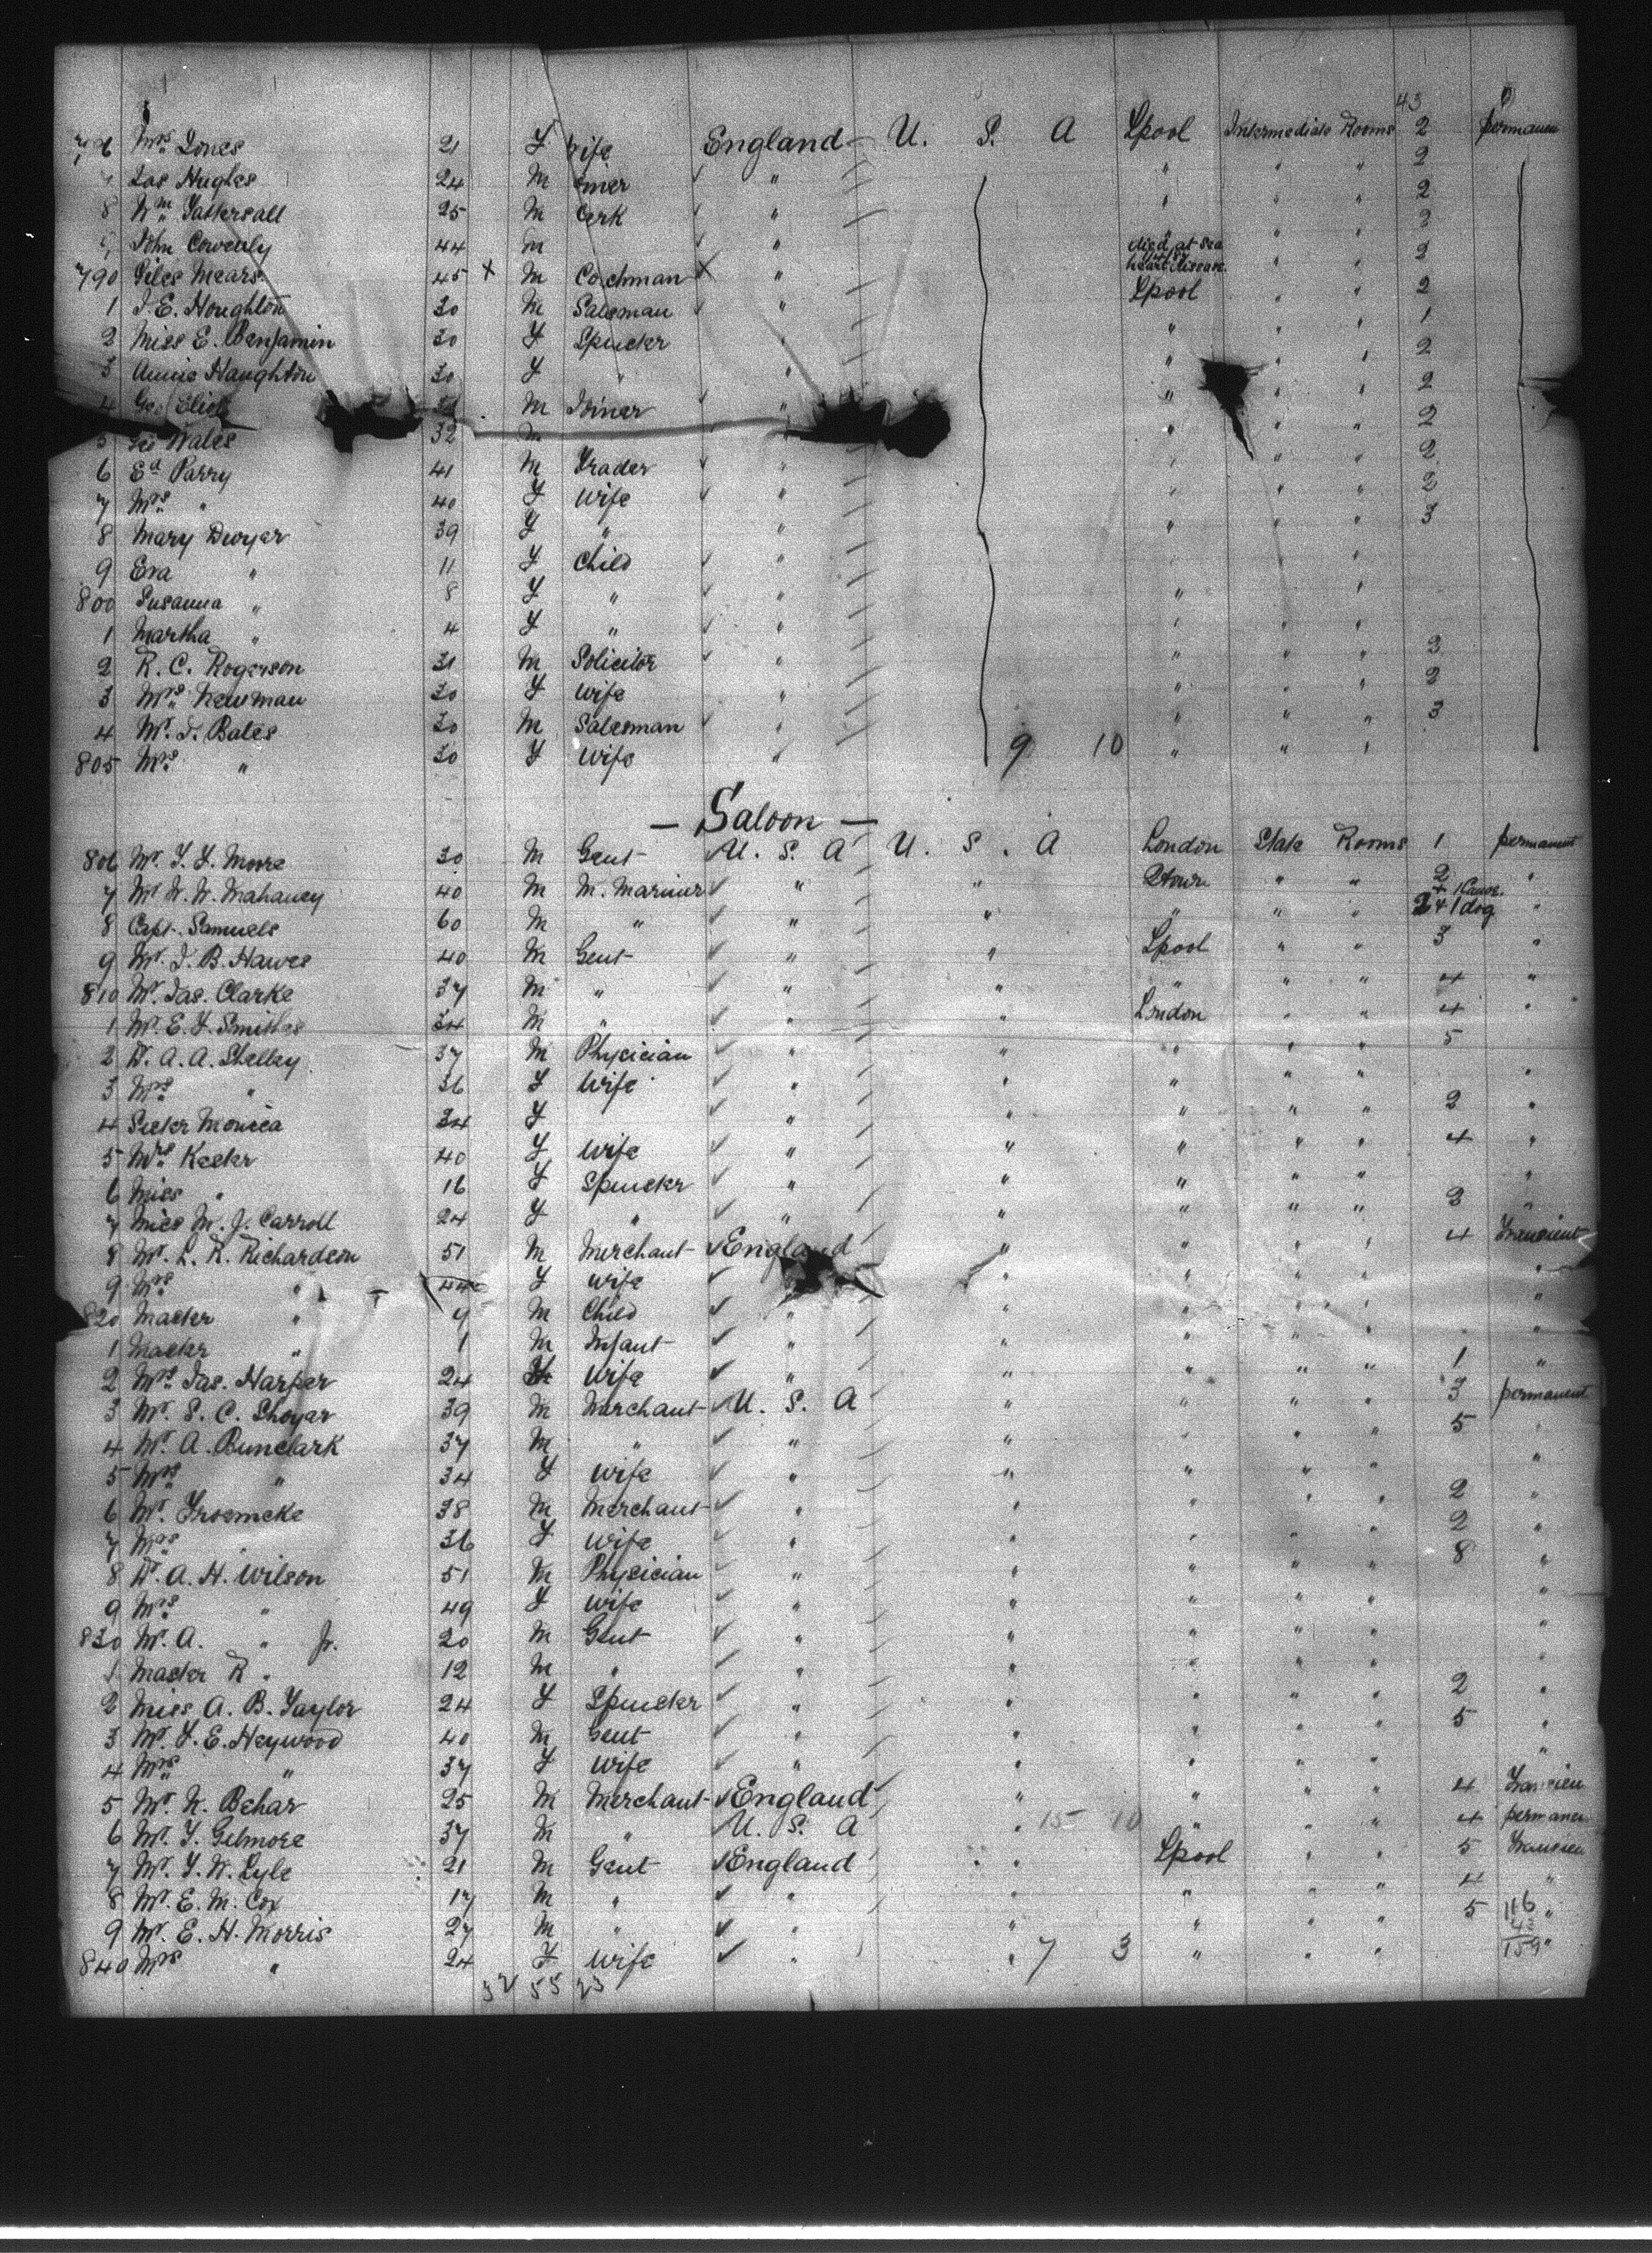 43
Mrs Jones 21 F wife England U. S. A Lpool Intermediate Rooms 2 permanen
7 Jas Hughes 24 M " " " " 2
8 Wm Tattersall 25 M Clerk " " " " 2
9 John 44 M " " " 2
790 Giles Mears 45 X M Coachman X " died at Sea heart disease " " 2
1 J. E. Houghton 30 M Salesman " Lpool " " 2
2 Miss E. Benjamin 30 F Spinster " " " " 1
3 Annie Haughton 30 F " " " " " 2
4 Geo M Joiner " " " " 2
5 Wales 32 M " " " " 2
6 Ed Parry 41 M Trader " " " " 2
7 Mrs " 40 F Wife " " " " 2
8 Mary Dwyer 39 F " " " " " 3
9 Eva " 11 F Child " " " "
800 Susanna " 8 F " " " " "
1 Martha " 4 F " " " " "
2 R. C. Rogerson 31 M Solicitor " " " " 2
3 Mrs Newman 30 F Wife " " " " 2
4 Mr. J. Bates 30 M Salesman " " " " 3
805 Mrs " 30 F Wife " 9 10 " " "
— Saloon —
806 Mr. T. F. Moore 30 M Gent U. S. A U. S. A London State Rooms 1 permanent
7 Mr W. W. Mahaney 40 M M. Mariner " " " " 2 + 1 Canoe "
8 Capt. Samuels 60 M " " " " " " 2 + 1 dog "
9 Mr. J. B. Hawes 40 M Gent " " Lpool " " 3 "
810 Mr. Jas. Clarke 37 M " " " " " " 4 "
1 Mr. E. F. 34 M " " " London " " 4 "
2 Dr. A. A. Shelley 37 M Physician " " " " " 5
3 Mrs " 36 F Wife " " " " " "
4 Sister Monica 34 F " " " " " 2 "
5 Mrs Kester 40 F Wife " " " " " 4 "
6 Miss " 16 F Spinster " " " " " "
7 Miss M. J. Carroll 24 F " " " " " " 2 "
8 Mr. L. R. Richardson 51 M Merchant England " " " " 4 Transient
9 Mrs " 44 F Wife " " " " " "
820 Master " 4 M Child " " " " " "
1 Master " 1 M Infant " " " " " "
2 Mrs Jas. Harper 24 F Wife " " " " " 1 "
3 Mr. S. C. Shoyer 39 M Merchant U. S. A " " " " 3 permanent
4 Mr. A. Bunclark 37 M " " " " " " 5 "
5 Mrs " 34 F Wife " " " " " "
6 Mr. Troemcke 38 M Merchant " " " " " 2 "
7 Mrs " 36 F Wife " " " " " 2 "
8 Dr. A. H. Wilson 51 M Physician " " " " " 8 "
9 Mrs " 49 F Wife " " " " " "
830 Mr. A. " Jr. 20 M Gent " " " " " "
1 Master R " 12 M " " " " " " "
2 Miss A. B. Taylor 24 F Spinster " " " " " 2 "
3 Mr. F. E. Heywood 40 M Gent " " " " " 5 "
4 Mrs " 37 F Wife " " " " " "
5 Mr. N. Behar 25 M Merchant England " " " " 4
6 Mr. T. Gilmore 37 M " U. S. A " 15 10 " " " 4 permanen
7 Mr. T. W. Lyle 21 M Gent England " Lpool " " 5
8 Mr. E. M. Cox 17 M " " " " " " 4 "
9 Mr. E. H. Morris 27 M " " " " " " 5 "
840 Mrs " 24 F Wife " " 7 3 " " " "
32 55 23
116
43
159